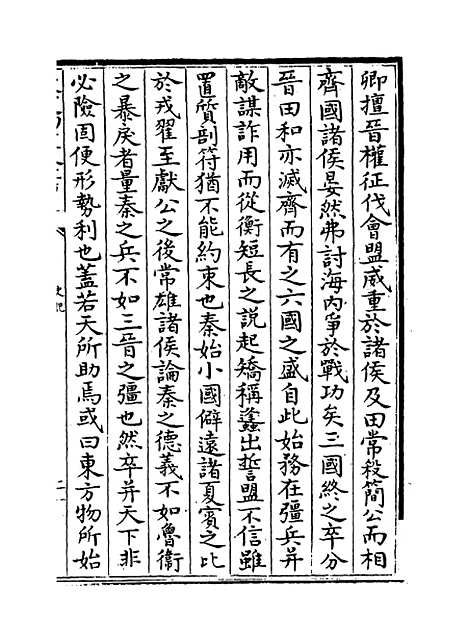 卿擅晉權征伐會盟威重於諸侯及田常殺簡公而相
齊國諸侯晏然弗討海內爭於戰功矣三國終之卒分
晉田和亦滅齊而有之六國之盛自此始務在彊兵并
敵謀詐用而從衡短長之説起矯稱蠭出誓盟不信雖
置質剖符猶不能約束也秦始小國僻遠諸夏賓之比
於戎翟至獻公之後常雄諸侯論秦之德義不如魯衞
之暴戾者量秦之兵不如三晉之彊也然卒并天下非
必險固便形勢利也蓋若天所助焉或曰東方物所始
史記